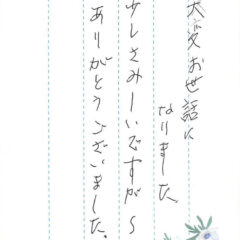 大変お世話に
なりました
少しさみしいですが〜
ありがとうございました。